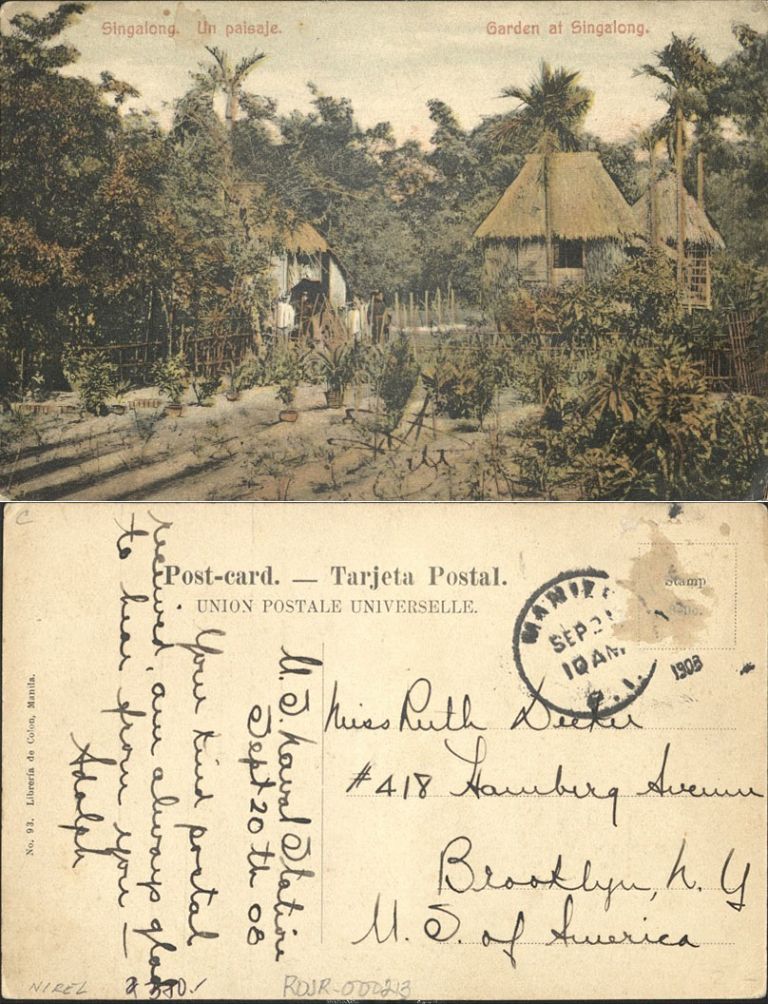 Singalong. Un paisaje.
Garden at Singalong.
Post-card. — Tarjeta Postal.
UNION POSTALE UNIVERSELLE.
Stamp
MANILA
SEP 21
10 AM
P. I.
1908
No. 93. Librería de Colon, Manila.
U. S. Naval Station
Sept 20th 08
Your kind postal
received, am always glad
to hear from you —
Adolph
Miss Ruth Decker
#418 Hamberg Avenue
Brooklyn, N. Y
U. S. of America
C
NIREL
RDJR-000213